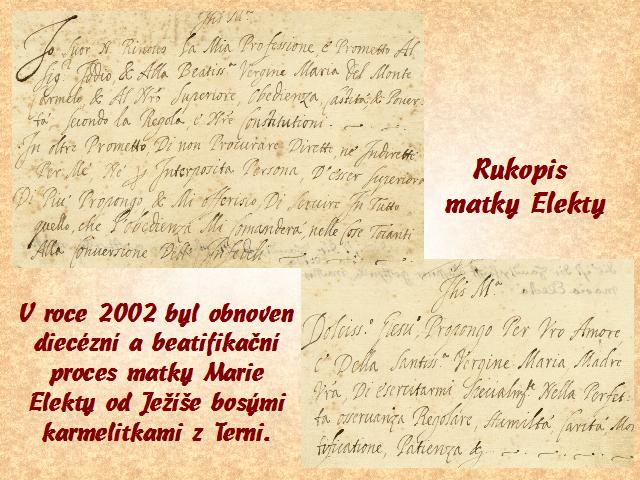 Jhs Mª
Io Suor N Rinovo La Mia Professione e Prometto Al
Sigr Iddio, & Alla Beatissª Vergine Maria del Monte
Carmelo, & Al Nro Superiore, Obedienza, Castità, & Pover-
tà, secondo la Regola e Nre Constitutioni.
In oltre Prometto Di non Procurare Dirette ne Indirette
Per Me Né Interposita Persona D'esser superiora
Di Più Propongo, & Mi offerisco Di Servire In Tutto
quello, che l'obedienza Mi Comanderà nelle Cose Toccanti
Alla Conversione Dell' Infedeli
Rukopis
matky Elekty
V roce 2002 byl obnoven
diecézní a beatifikační
proces matky Marie
Elekty od Ježíše bosými
karmelitkami z Terni.
Jhs Mª
Dolcissº Giesù, Propongo Per Vro Amore
e Della Santissª Vergine Maria Madre
Vra, Di esercitarmi Specialmte Nella Perfet-
ta osservanza Regolare, Humiltà, Carità Mor
tificatione, Patienza &